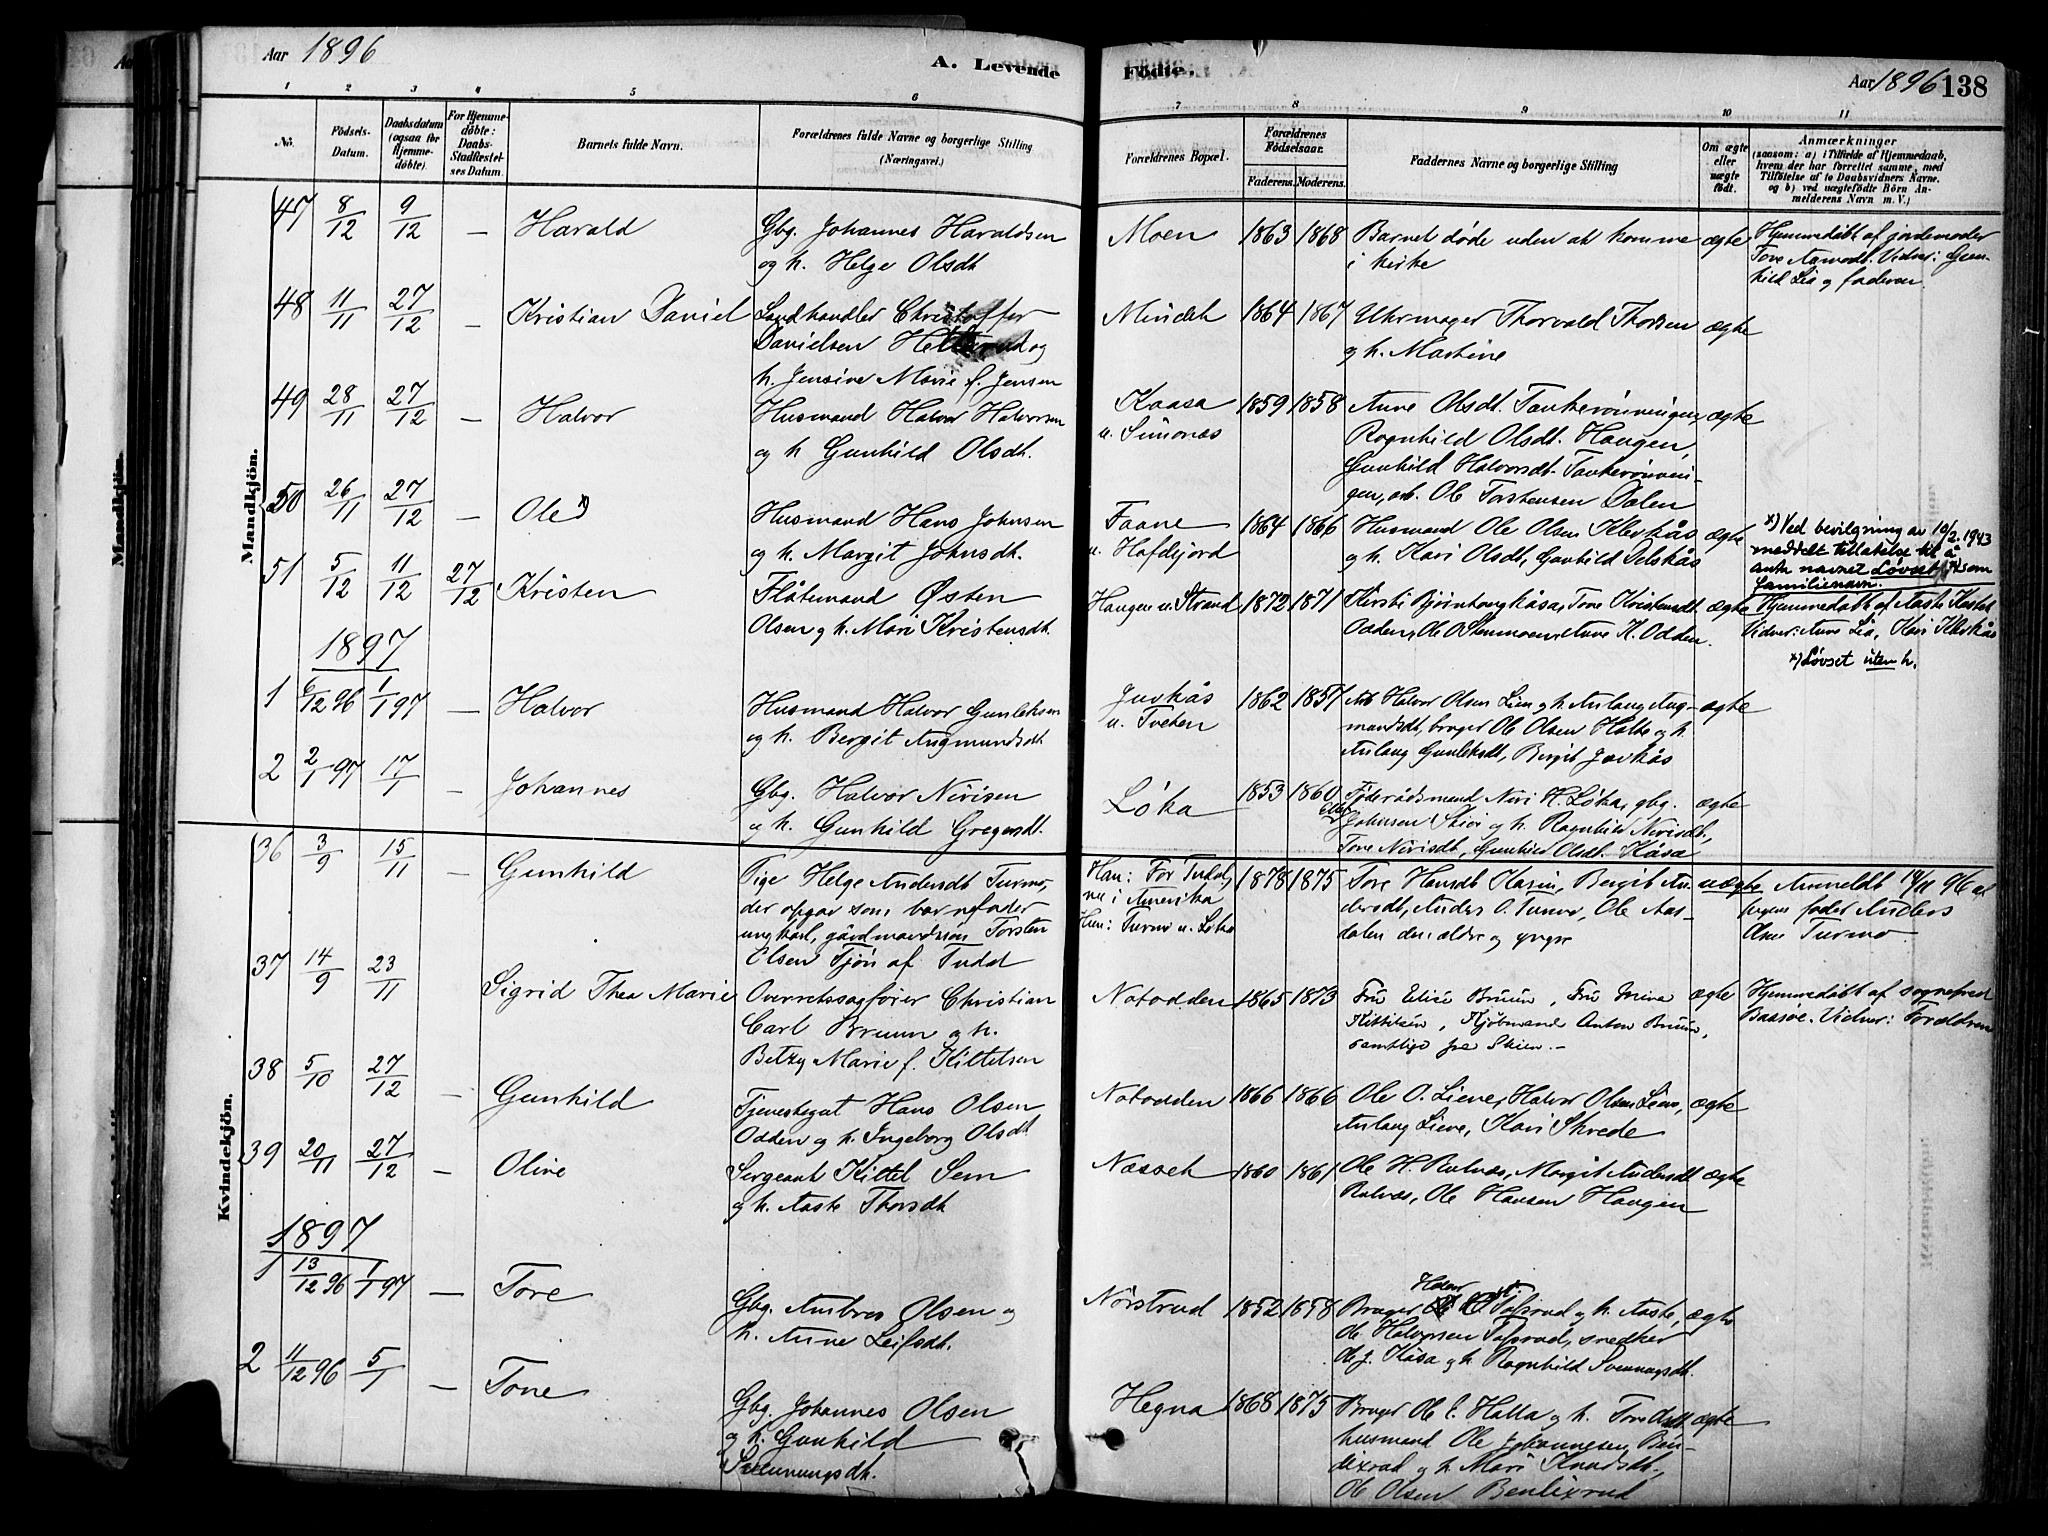 Aar 1896
A. Levende
Fødte.
Aar 1896
138
1 2 3 4 5 6 7 8 9 10 11
No.
Fødsels-
Datum.
Daabsdatum
(ogsaa for
Hjemme-
døbte).
For Hjemme-
døbte:
Daabs-
Stadfæstel-
ses Datum.
Barnets fulde Navn.
Forældrenes fulde Navne og borgerlige Stilling
(Næringsvei.)
Forældrenes Bopæl.
Forældrenes
Fødselsaar.
Faderens. Moderens.
Faddernes Navne og borgerlige Stilling
Om ægte
eller
uægte
født.
Anmærkninger
(saasom: a) i Tilfælde af Hjemmedaab,
hvem der har forrettet samme, med
Tilføielse af to Daabsvidners Navne,
og b) ved uægtefødte Børn An-
melderens Navn m. V.)
Mandkjøn.
47 8/12 9/12 — Harald
Gbg. Johannes Haraldsen
og h. Helge Olsdt.
Moen 1863 1868
Barnet døde uden at komme
i kirke
ægte
Hjemmedøbt af jordemoder
Tove Aamodt. Vidner: Gun-
hild Lia og faderen
48 11/11 27/12 — Kristian Daniel
Landhandler Christoffer
Davielsen og
h. Jensine Marie f. Jensen
Mindet 1864 1867
Uhrmager Thorvald Thorsen
og h. Martine
ægte
49 28/11 27/12 — Halvor
Husmand Halvor Halvorsen
og h. Gunhild Olsdt.
Kaasa
u. Semonæs
1859 1858
Anne Olsdt. Tankerønningen,
Ragnhild Olsdt. Haugen,
Gunhild Halvorsdt. Tankerønnin-
gen, arb. Ole Torstensen Dalen
ægte
50 26/11 27/12 — Ole x)
Husmand Hans Johnsen
og h. Margit Johnsdt.
Faane
u. Hafdejord
1864 1866
Husmand Ole Olsen Klevkås
og h. Kari Olsdt, Gunhild Selskås
ægte
x) Ved bevilgning av 10/2. 1943
meddelt tillatelse til å
anta navnet Løvset x) som
familienavn.
51 5/12 11/12 27/12 Kristen
Flåtemand Østen
Olsen og h. Mari Kristensdt.
Haugen u. Strand 1872 1871
Kirsti Bjørnhougkåsa, Tone Kristensdt.
Odden, Ole O. Stenmoen, Anne K. Odden.
ægte
Hjemmedøbt af Aaste
Vidner: Anne Lia, Kari Klevkås
x) Løvset uten h.
1897
1 6/12 96 1/1 97 — Halvor
Husmand Halvor Gunleksen
og h. Bergit Augmundsdt
Juvkås
u. Tveten
1862 1857
Arb Halvor Olsen Lien og h. Anlaug Aug-
mandsdt, bruger Ole Olsen Holte og h.
Anlaug Gunleksdt, Bergit Juvkås
ægte
2 2/1 97 17/1 — Johannes
Gbg. Halvor Nirisen
og h. Gunhild Gregersdt.
Løka 1853 1860
Føderådsmand Niri H. Løka, gbg.
Johnsen Skiei og h. Ragnhild Nirisdt,
Tone Nirisdt, Gunhild Olsdt. Kåsa
ægte
Kvindekjøn.
36 3/9 15/11 Gunhild
Pige Helge Andersdt Turmo,
der opgav som barnefader
ungkarl, gårdmandssøn Torsten
Olsen Tjøn af Tudd
Han: For Tudd,
nu i Amerika
Hun: Turmo u. Løka
1878 1875
Tore Hansdt Kasin, Bergit An-
dersdt, Anders O. Turmo, Ole Aas-
dalen den ældre og yngre
uægte
Anmeldt 14/11 96 af
pigens fader Anders
Olsen Turmo.
37 14/9 23/11 Sigrid Thea Marie
Overretssagfører Christian
Carl Bruun og h.
Betzy Marie f. Kittelsen
Notodden 1865 1873
Fru Elise Bruun, Fru Mina
Kittilsen, Kjøbmand Anton Bruun,
samtlige fra Skien.—
ægte
Hjemmedøbt af sognepræst
Baasøe. Vidner: Forældrene
38 5/10 27/12 — Gunhild
Tjenestegut Hans Olsen
Odden og h. Ingeborg Olsdt
Notodden 1866 1866
Ole O. Liene, Halvor Olsen Liene,
Anlaug Liene, Kari Skrede
ægte
39 20/11 27/12 — Olive
Sergeant Kittel Sem
og h. Aaste Thorsdt
Næsset 1860 1861
Ole H. Rolnæs, Margit Andersdt
Rolnæs, Ole Hansen Haugen
ægte
1897
1 13/12 96 1/1 97 — Tore
Gbg. Ambros Olsen og
h. Anne Leifsdt.
Nørstrud 1852 1858
Bruger Halvor Tofsrud og h. Aaste,
Ole Halvorsen Tofsrud, snedker
Ole J. Kåsa og h. Ragnhild Svenungsdt.
ægte
2 11/12 96 5/1 — Tone
Gbg. Johannes Olsen
og h. Gunhild
Svenningsdt.
Hegna 1868 1875
Bruger Ole E. Halla og h. Tone Olsdt,
husmand Ole Johannesen Ben-
dixrud og h. Mari Knudsdt,
Ole Olsen Bendixrud
ægte